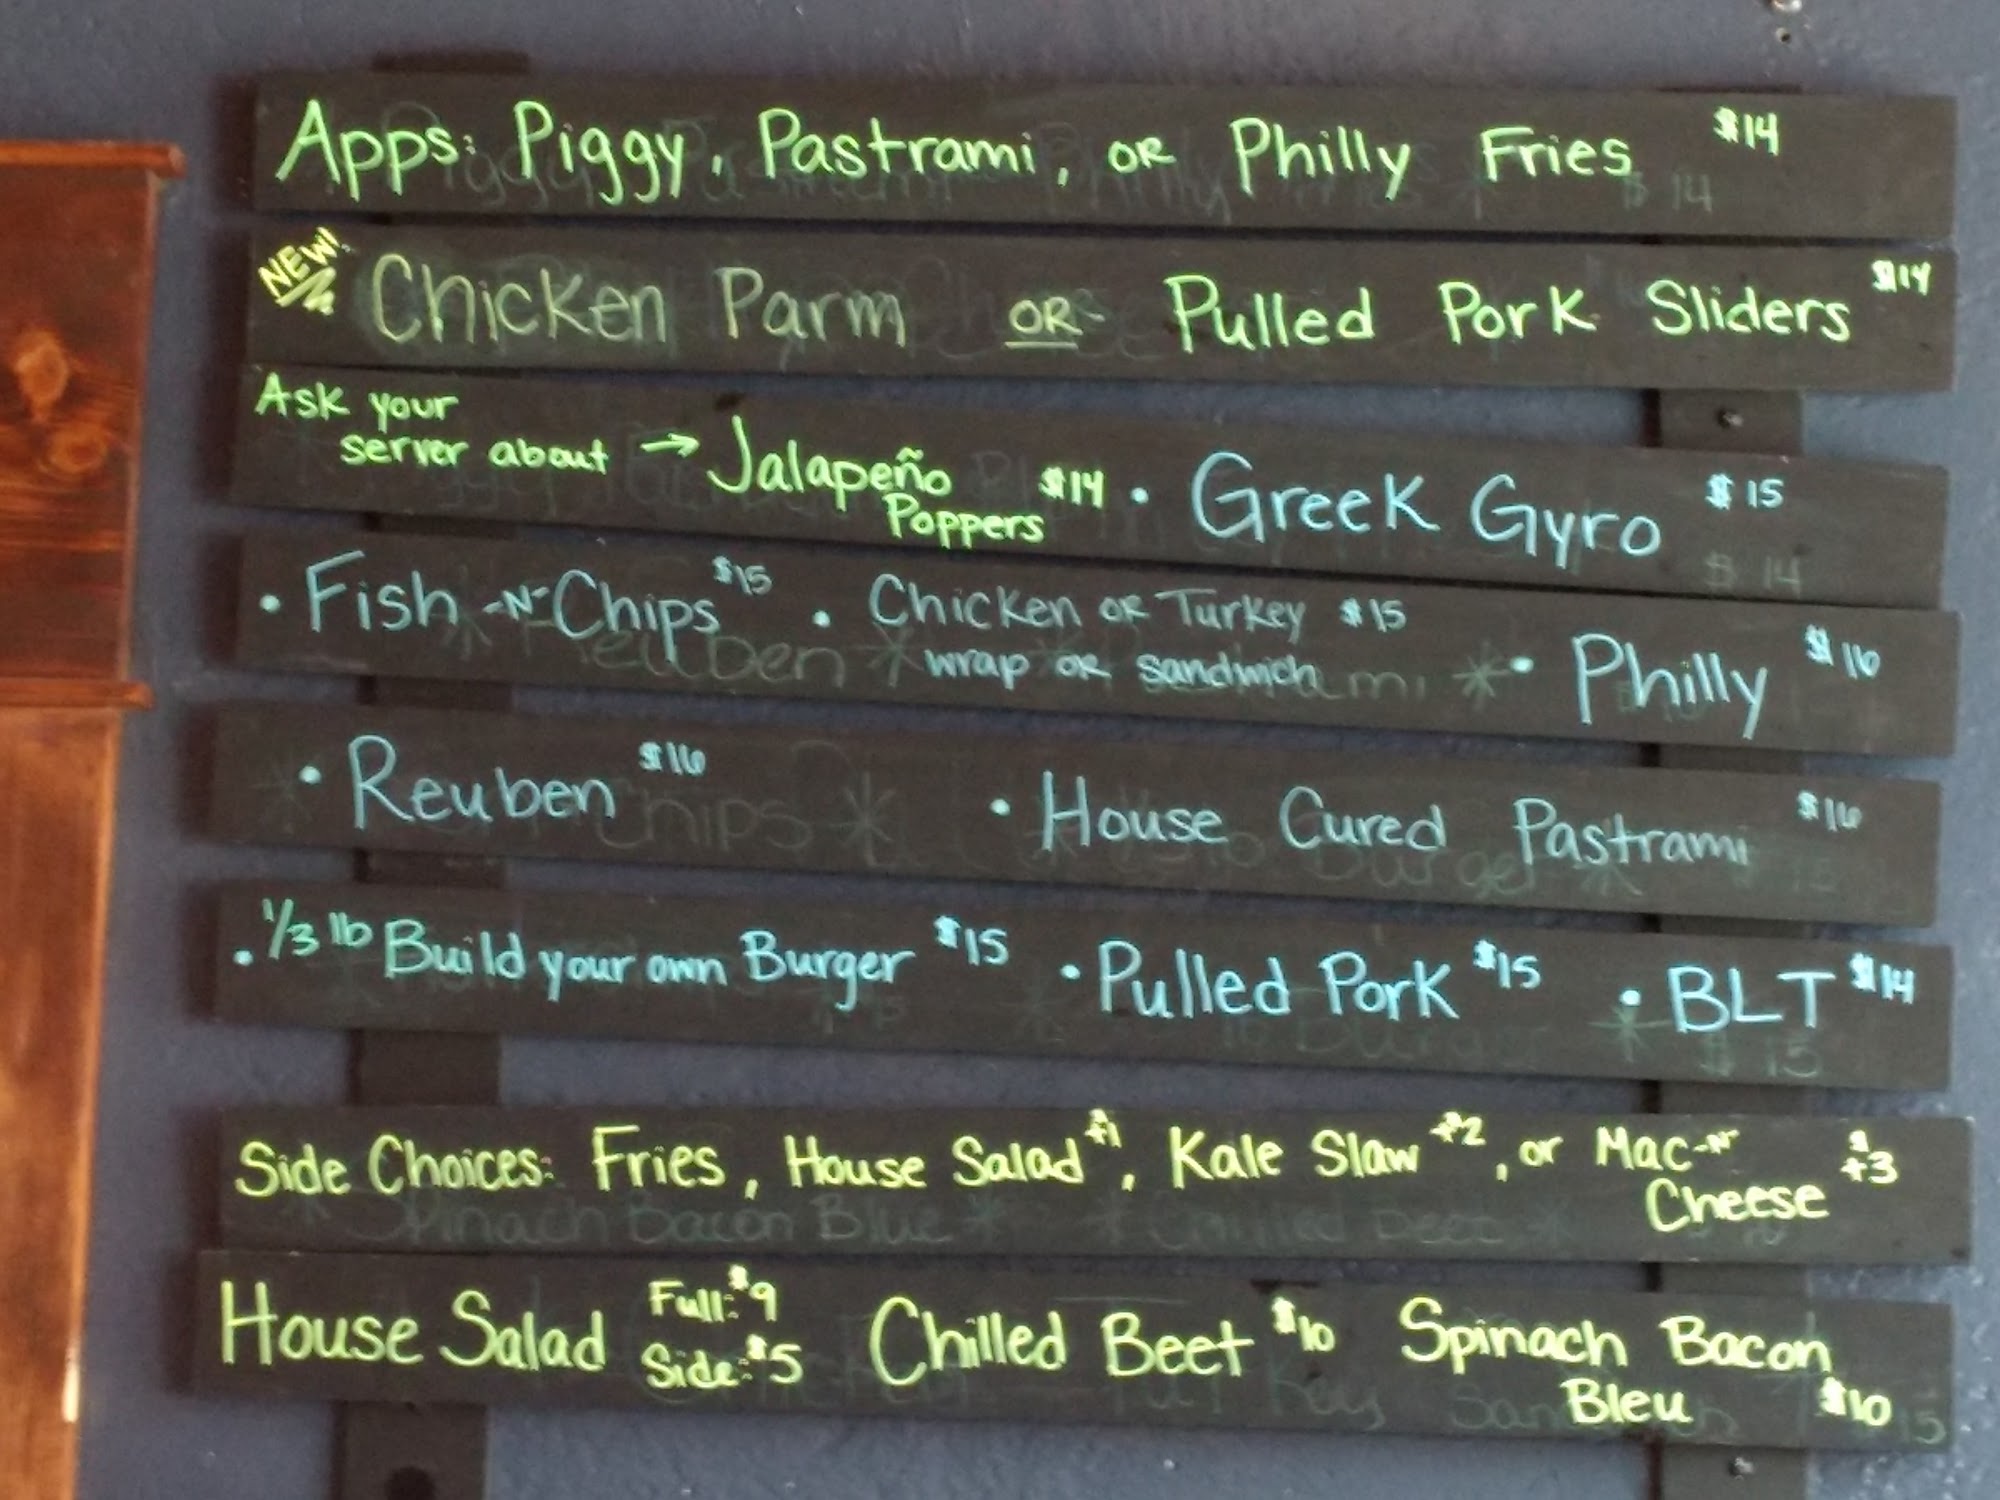 Apps: Piggy, Pastrami, or Philly Fries $14
NEW! Chicken Parm OR Pulled Pork Sliders $14
Ask your
server about → Jalapeño
Poppers $14 • Greek Gyro $15
• Fish -N- Chips $15 • Chicken or Turkey $15
wrap or sandwich • Philly $16
• Reuben $16 • House Cured Pastrami $16
• 1/3 lb Build your own Burger $15 • Pulled Pork $15 • BLT $14
Side Choices: Fries, House Salad +$1, Kale Slaw +$2, or Mac -N-
Cheese +$3
House Salad Full: $9
Side: $5
Chilled Beet $10
Spinach Bacon
Bleu $10